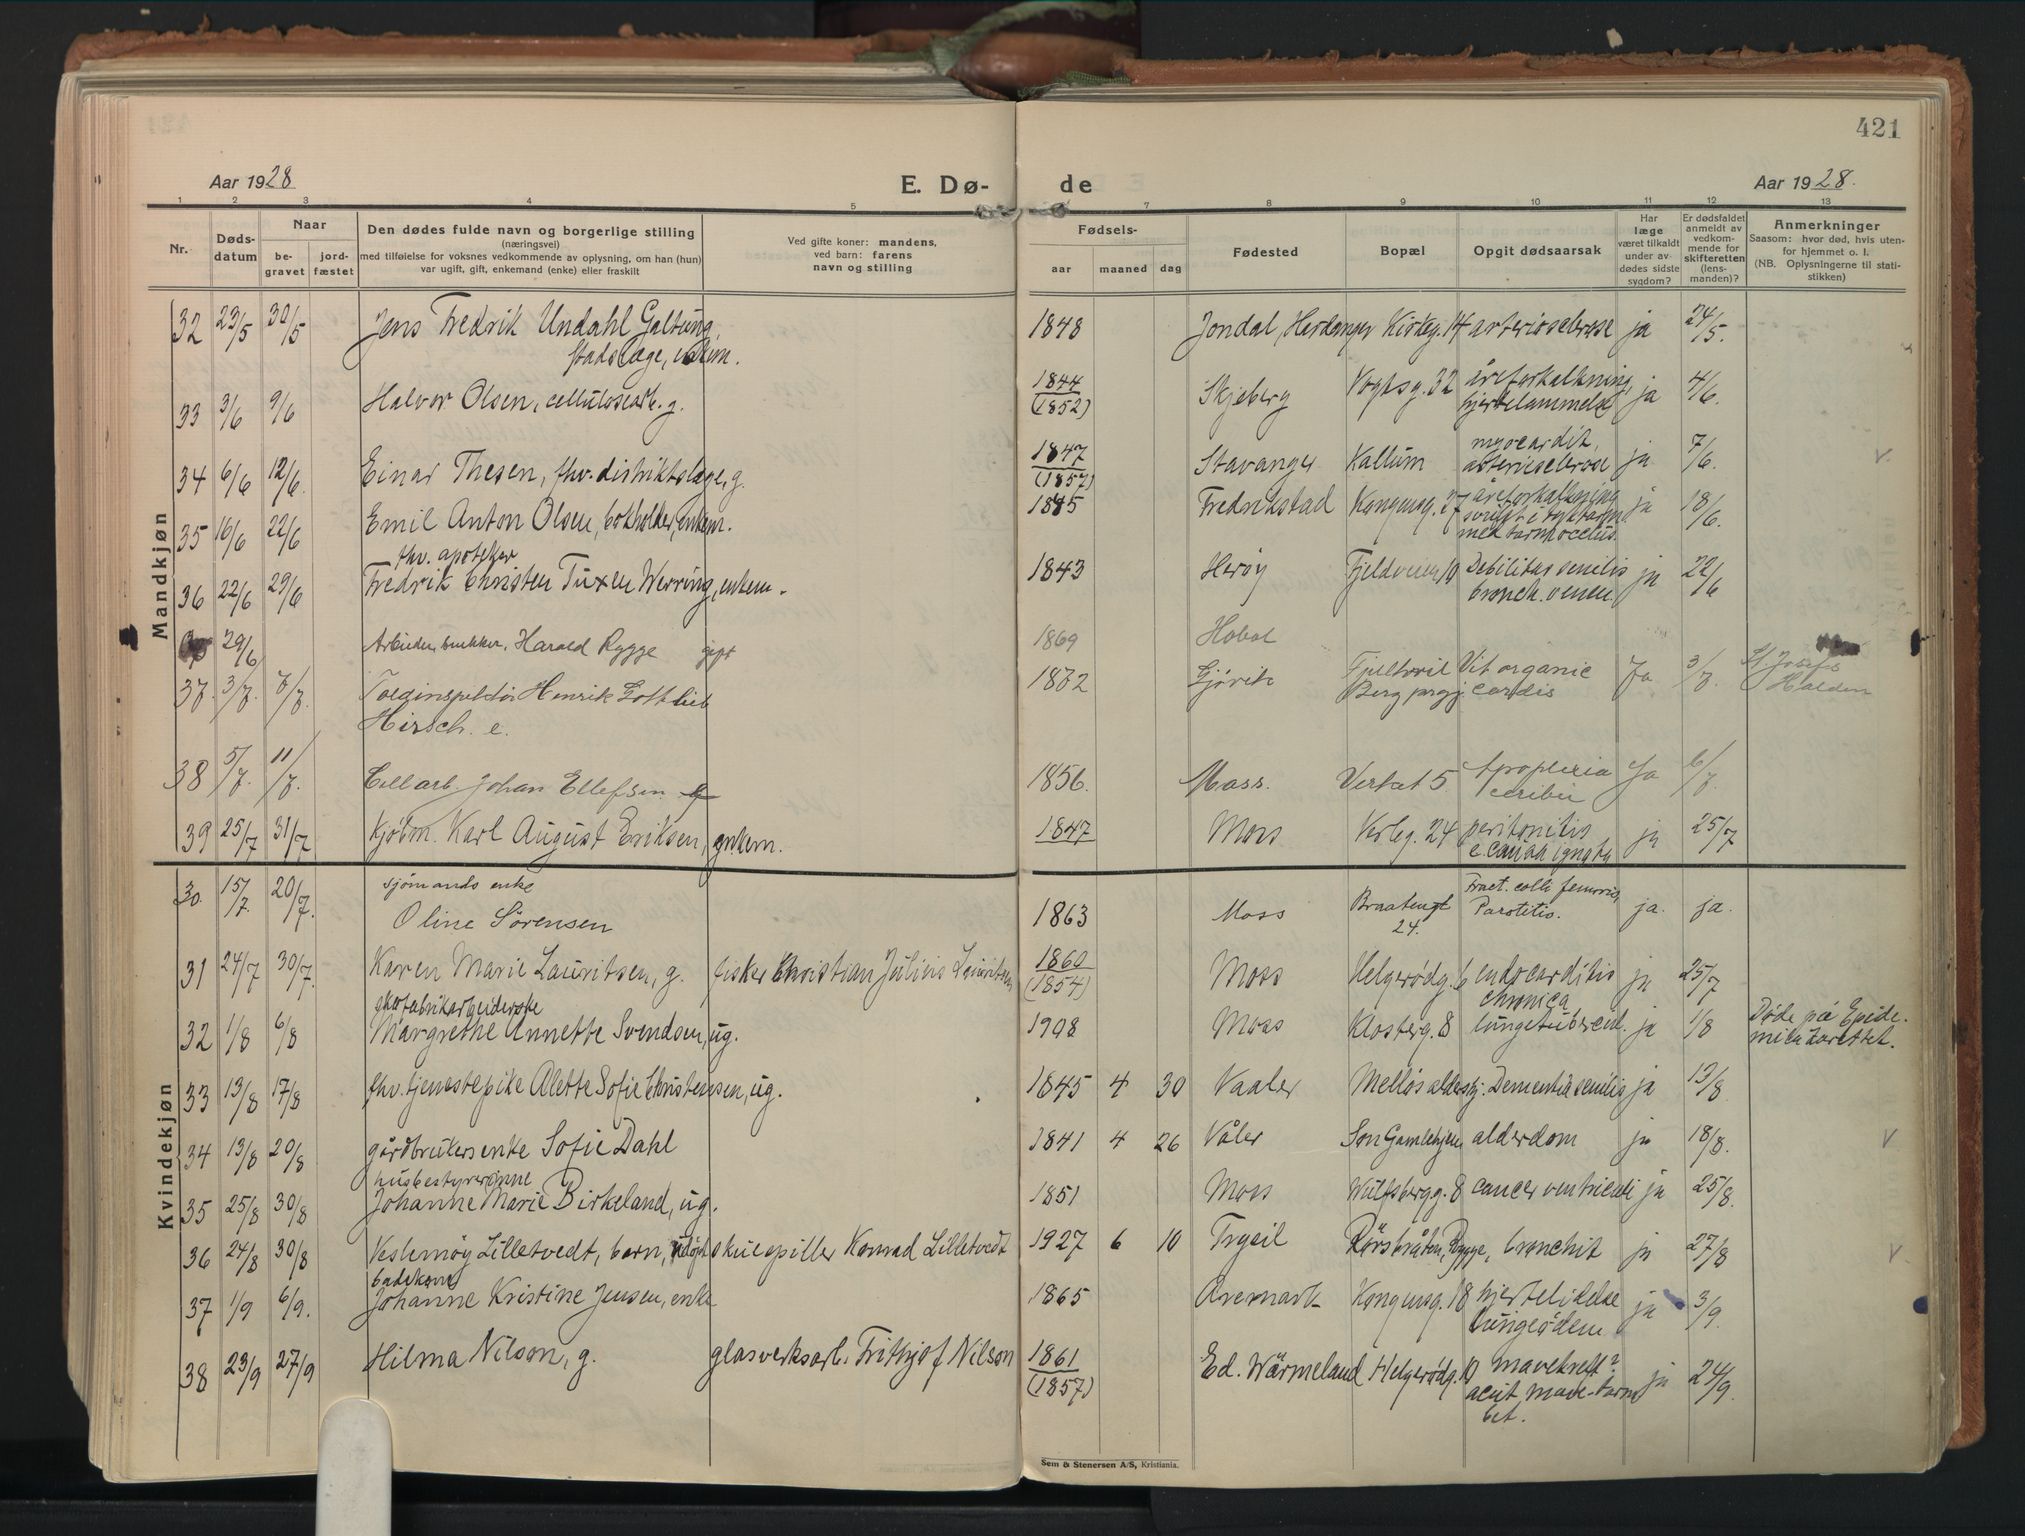 421
Aar 1928
E. Dø-
de
Aar 1928.
1 2 3 4 5 7 8 9 10 11 12 13
Nr.
Døds-
datum
Naar
be-
gravet
jord-
fæstet
Den dødes fulde navn og borgerlige stilling
(næringsvei)
med tilføielse for voksnes vedkommende av oplysning, om han (hun)
var ugift, gift, enkemand (enke) eller fraskilt
Ved gifte koner: mandens,
ved barn: farens
navn og stilling
Fødsels-
aar
maaned
dag
Fødested
Bopæl
Opgit dødsaarsak
Har
læge
været tilkaldt
under av-
dødes sidste
sygdom?
Er dødsfaldet
anmeldt av
vedkom-
mende for
skifteretten
(lens-
manden)?
Anmerkninger
Saasom: hvor død, hvis uten-
for hjemmet o. l.
(NB. Oplysningerne til stati-
stikken)
Mandkjøn
32 23/5 30/5 Jens Fredrik Undahl Galtung, 1848 Jondal, Hardanger Kirkeg. 14 arteriosclerose ja 24/5.
stadslæge, enkem.
33 3/6 9/6 Halvor Olsen, cellulosearb. g. 1844 (1852) Skjeberg Vogtsg. 32 åreforkalkning, hjertelammelse ja 4/6.
34 6/6 12/6. Einar Thesen, fhv. distriktslæge, g. 1847 (1857) Stavanger Kallum myocardit, arteriosclerose ja 7/6. v.
35 16/6 22/6 Emil Anton Olsen, bokholder, enkem. 1845 Fredrikstad Kongensg. 27 åreforkalkning ja 18/6.
fhv. apoteker
36 22/6 29/6 Fredrik Christen Tuxen Werring, enkem. 1843 Herøy Fjeldveien 19 Debilitas senilis bronch. ja 22/6
29/6 Arbeider Harald Rygge gift 1869 Hobøl
37. 3/7. 7/7. Toldinspektør Henrik Gottlieb 1872 Gjøvik Berg Vit organic cardis Ja 3/7. St. Josefs Halden
Hirsch. e.
38 5/7. 11/7. Cell arb. Johan Ellefsen. g 1856. Moss. Verket 5. Apoplexia cerebri Ja 6/7.
39 25/7 31/7 Kjøbm. Karl August Eriksen, enkem. 1847 Moss Verleg. 24 peritonitis e causa ignota ja 25/7
Kvindekjøn
30. 15/7. 20/7. sjømands enke
Oline Sørensen 1863 Moss Braatengt 24. Fract. colli femoris, Parotitis. ja. ja.
31 24/7 30/7. Karen Marie Lauritsen, g. fisker Christian Julius Lauritsen 1860 (1854) Moss Helgerødg. 6 endocarditis chronica ja 25/7
skofabrikarbeiderske
32 1/8 6/8 Margrethe Annette Svendsen, ug. 1908 Moss Klosterg. 8 lungetubercul. ja 1/8 Døde på Epide-
milazarettet.
33 13/8 17/8 fhv. tjenestepike Alette Sofie Christensen, ug. 1845 4 30 Vaaler Melløs aldershj. Dementia senilis ja 13/8
34 13/8 20/8 gårdbrukersenke Sofie Dahl 1841 4 26 Våler Son Gamlehjem alderdom ja 18/8. v
husbestyrerinne
35 25/8 30/8 Johanne Marie Birkeland, ug. 1851 Moss Wulfsbergg. 8 cancer ventriculi ja 25/8.
36 24/8 30/8 Veslemøy Lilletvedt, barn, udøpt skuespiller Konrad Lilletvedt 1927 6 10 Trysil Rørsbråten, Rygge, bronchit ja 27/8 v
badekone
37 1/9 6/9. Johanne Kristine Jensen, enke 1865 Aremark Kongensg. 18 hjertelidelse lungeødem ja 3/9.
38 23/9 27/9 Hilma Nilson, g. glasverksarb. Frithjof Nilson 1861 (1857) Ed. Wärmeland Helgerødg. 10 mavekreft? acut mave-tarm bet. ja 24/9.
Sem & Stenersen A/S, Kristiania.